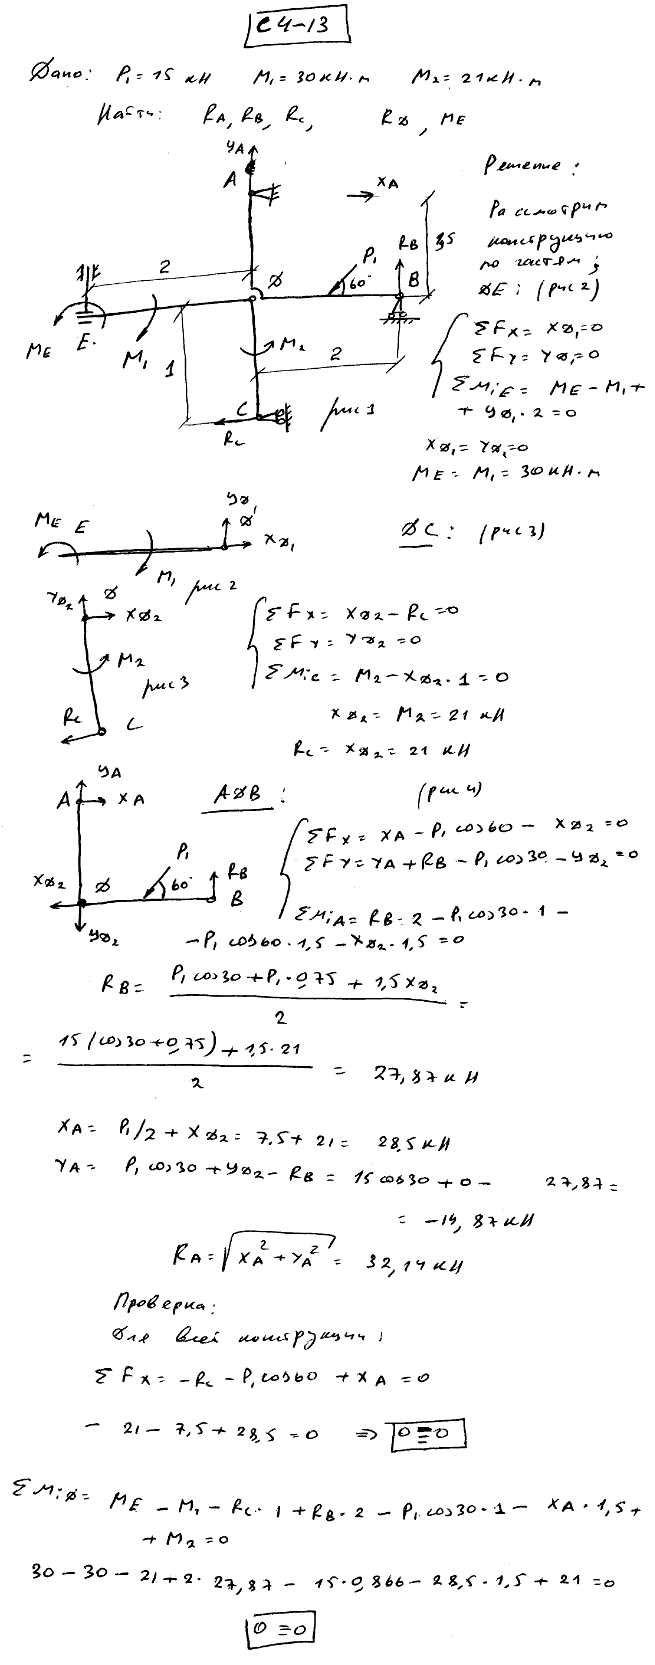 С4-13
Дано: P₁ = 15 кН M₁ = 30 кН·м M₂ = 21 кН·м
Найти: RA, RB, Rc, RD, ME
Решение:
Рассмотрим
конструкцию
по частям;
DE: (рис 2)
yA
A
XA
RB
3,5
P₁
60°
B
D
2
E.
ME
M₁
1
M₂
2
C
Rc
рис 1
ΣFx = XD₁ = 0
ΣFy = YD₁ = 0
ΣMiE = ME - M₁ +
+ YD₁ · 2 = 0
XD₁ = YD₁ = 0
ME = M₁ = 30 кН·м
ME E
yD'
D'
XD₁
M₁ рис 2
DC: (рис 3)
YD₂
D
XD₂
M₂
рис 3
Rc
C
ΣFx = XD₂ - Rc = 0
ΣFy = YD₂ = 0
ΣMiC = M₂ - XD₂ · 1 = 0
XD₂ = M₂ = 21 кН
Rc = XD₂ = 21 кН
yA
A XA
ADB: (рис 4)
P₁
XD₂ D 60° RB
B
yD₂
ΣFx = XA - P₁ cos60 - XD₂ = 0
ΣFY = YA + RB - P₁ cos30 - YD₂ = 0
ΣMiA = RB · 2 - P₁ cos30 · 1 -
- P₁ cos60 · 1,5 - XD₂ · 1,5 = 0
RB = (P₁ cos30 + P₁ · 0,75 + 1,5 XD₂) / 2 =
= (15 (cos30 + 0,75) + 1,5 · 21) / 2 = 27,87 кН
XA = P₁/2 + XD₂ = 7,5 + 21 = 28,5 кН
YA = P₁ cos30 + YD₂ - RB = 15 cos30 + 0 - 27,87 =
= -14,87 кН
RA = √(XA² + YA²) = 32,14 кН
Проверка:
Для всей конструкции:
ΣFx = -Rc - P₁ cos60 + XA = 0
- 21 - 7,5 + 28,5 = 0 ⇒ 0 ≡ 0
ΣMiD = ME - M₁ - Rc · 1 + RB · 2 - P₁ cos30 · 1 - XA · 1,5 +
+ M₂ = 0
30 - 30 - 21 + 2 · 27,87 - 15 · 0,866 - 28,5 · 1,5 + 21 = 0
0 ≡ 0